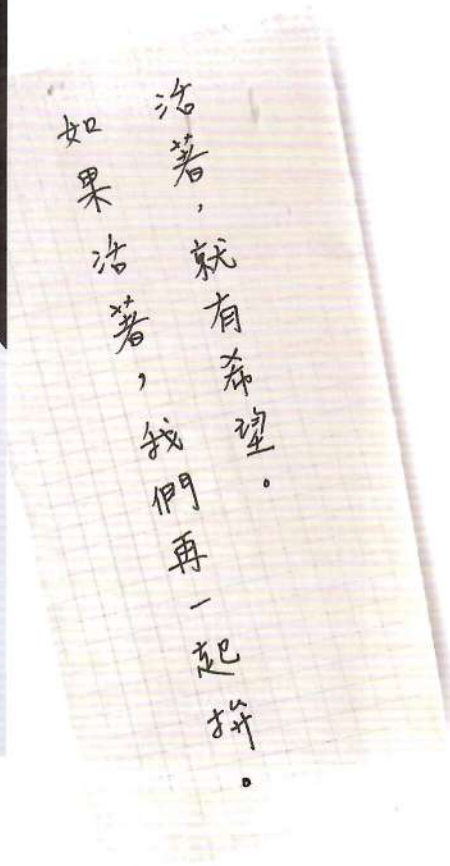 活著，就有希望。
如果活著，我們再一起拚。